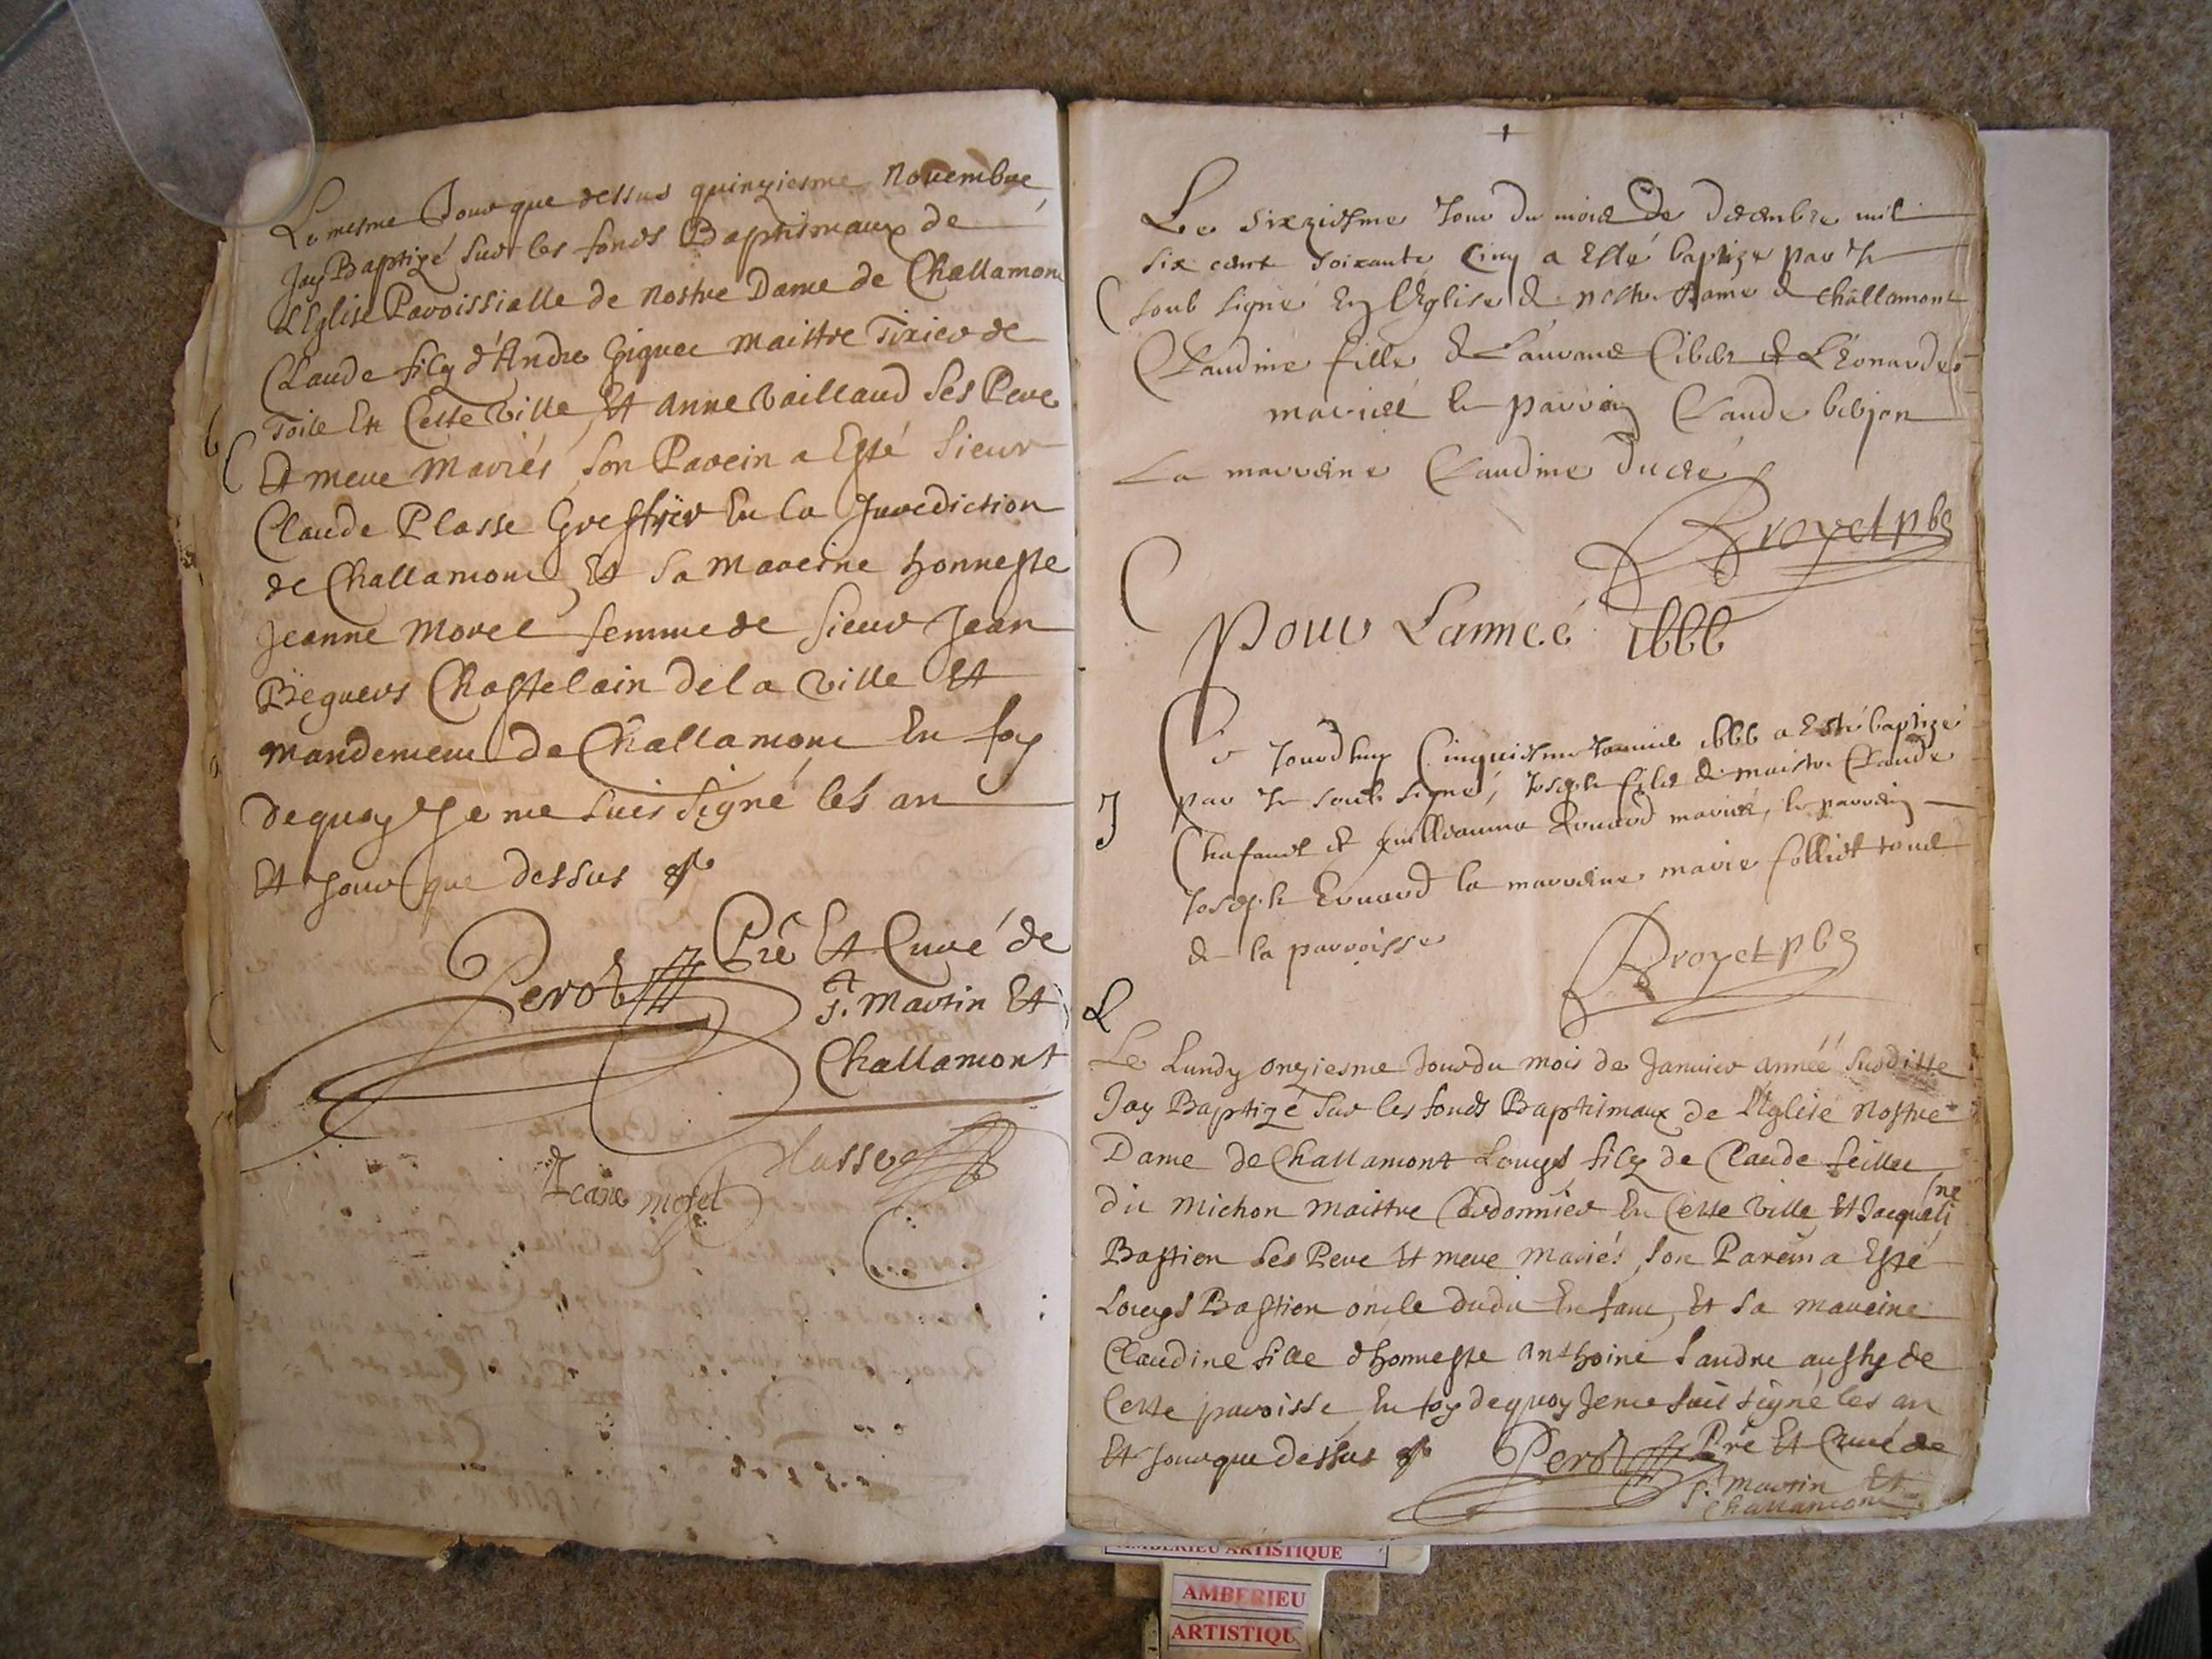 Le mesme Jour que dessus quinziesme Novembre
Jay Baptizé Sur les fonds Baptismaux de
L'Eglise Paroissialle de Nostre Dame de Challamont
Claude filz d'Andre Giguet Maistre Tixier de
Toile En Cette Ville, Et Anne Vaillaud Ses Pere
Et mere Mariés, Son Parein a Esté Sieur
Claude Plasse Greffier En la Jurediction
de Challamont, Et Sa Mareine honneste
Jeanne Morel femme de Sieur Jean
Beguers Chastelain de la Ville Et
Mandement de Challamont En foy
dequoy Je me Suis Signé les an
Et Jour que dessus
Perot Pre Et Curé de
St. Martin Et
Challamont
Plasse
Jeane morel
C
Le sixziesme Jour du mois De decembre mil
six cent soixante Cinq a Esté baptize par Je
soub signé En l'Eglise de nostre Dame de Challamont
Claudine fille de Laurans Cibert et Leonarde
mariés le parrain Claude
La marreine Claudine Ducré
Broyet pbr
Pour L'année 1666
J
Ce Jourdhuy Cinquiesme Janvier 1666 a Esté baptizé
par Je soub signé, Joseph fils de maistre Claude
Chafaud et Guilleaume Ernard mariés, le parrein
Joseph Ernard la marreine marie folliet tous
de la parroisse
Broyet pbr
L
Le Lundy onziesme Jour du mois de Janvier année Susditte
Jay Baptizé Sur les fonds Baptismaux de L'Eglise Nostre
Dame de Challamont Louys filz de Claude feillet
dit Michon Maistre Cordonnier En Cette Ville Et Jacqueline
Bastien Ses Pere Et mere Mariés, Son Parein a Esté
Louys Bastien oncle dudit Enfant, Et Sa mareine
Claudine fille d'honneste Anthoine Landre aussy de
Cette paroisse, En foy dequoy Je me Suis Signé les an
Et Jour que dessus Perot Pre Et Curé de
St. Martin Et
Challamont
AMBERIEU ARTISTIQUE
AMBERIEU
ARTISTIQU